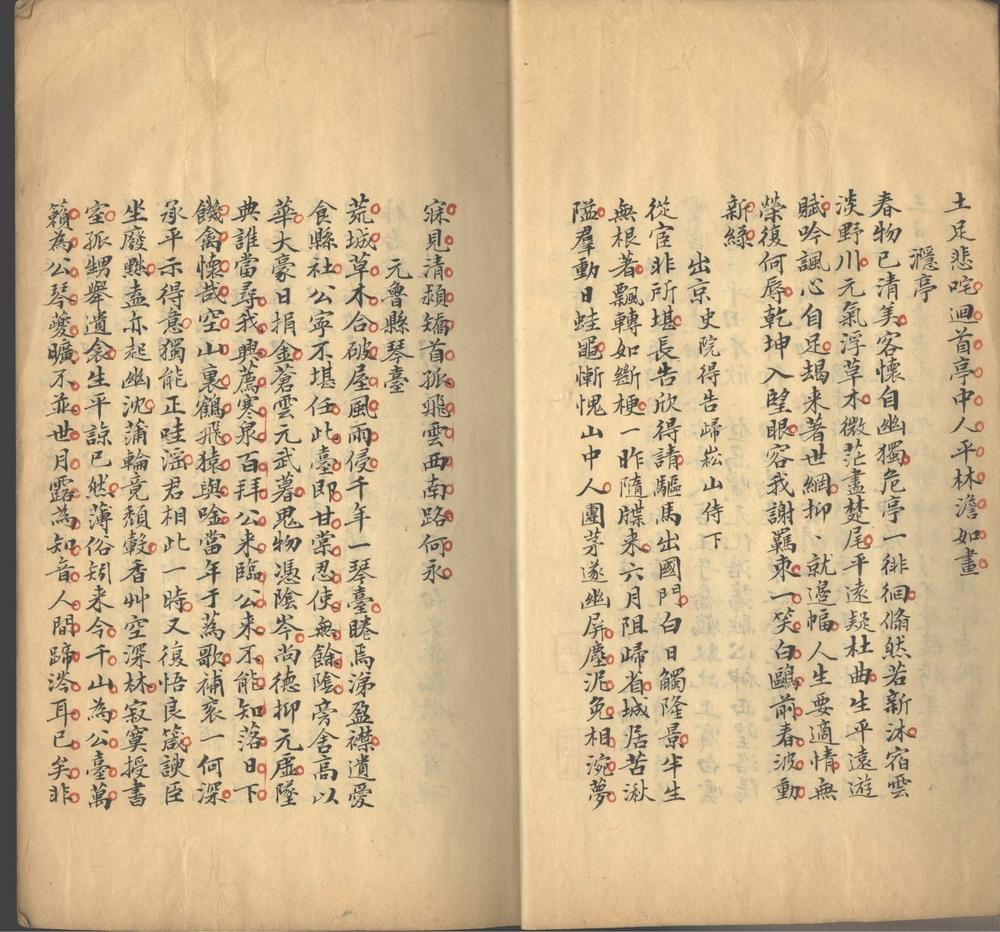 土足悲咤迴首亭中人平林澹如畫
㶏亭
春物已清美客懷自幽獨危亭一徘徊翛然若新沐宿雲
淡野川元氣浮草木微茫盡楚尾平遠疑杜曲生平遠遊
賦吟諷心自足朅来著世網抑〻就邊幅人生要適情無
榮復何辱乾坤入望眼容我謝羈束一笑白鷗前春波動
新綠
出京史院得告歸崧山侍下
從宦非所堪長告欣得請驅馬出國門白日觸隆景半生
無根著飄轉如斷梗一昨隨牒来六月阻歸省城居苦湫
隘羣動日蛙黽慚愧山中人團茅遂幽屏塵泥免相涴夢
寐見清潁矯首孤飛雲西南路何永
元魯縣琴臺
荒城草木合破屋風雨侵千年一琴臺睠焉涕盈襟遺愛
食縣社公寧不堪任此臺即甘棠忍使無餘陰旁舍高以
華大豪日捐金蒼雲元武暮鬼物憑陰岑尚德抑元虛墜
典誰當尋我興薦寒泉百拜公来臨公来不能知落日下
饑禽懷哉空山裏鶴飛猿與唫當年于蒍歌補衮一何深
承平示得意獨能正哇淫君相此一時又復悟良箴諛臣
坐廢黜盍亦起幽沈蒲輪竟頹轂香艸空深林寂寞授書
室孤甥舉遺衾生平諒已然薄俗矧来今千山為公臺萬
籟為公琴夔曠不並世月露為知音人間蹄涔耳已矣非